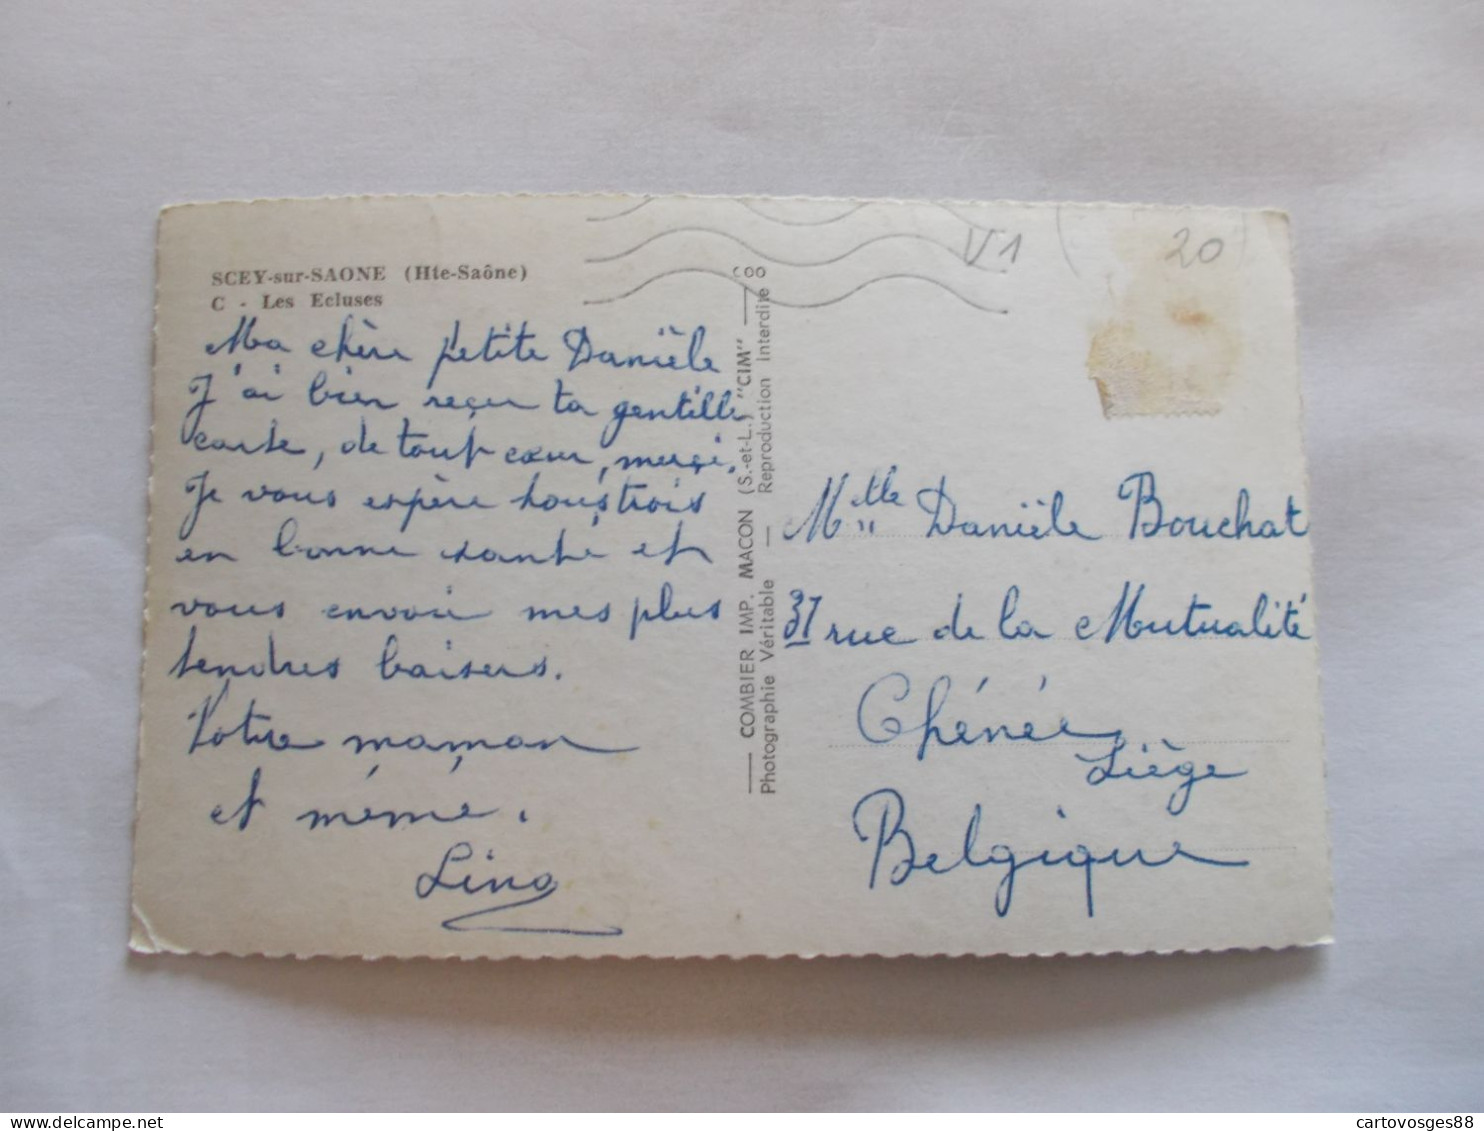 SCEY-sur-SAONE (Hte-Saône)
C - Les Ecluses
Ma chère petite Danièle
J'ai bien reçu ta gentille
carte, de tout cœur, merçi.
Je vous espère tous trois
en bonne santé et
vous envoie mes plus
tendres baisers.
Votre maman
et mémé.
Lina
COMBIER IMP. MACON (S.-et-L.) "CIM"
Photographie Véritable — Reproduction Interdite
V1
20
Mlle Danièle Bouchat
37 rue de la Mutualité
Chénée
Liège
Belgique
cartovosges88